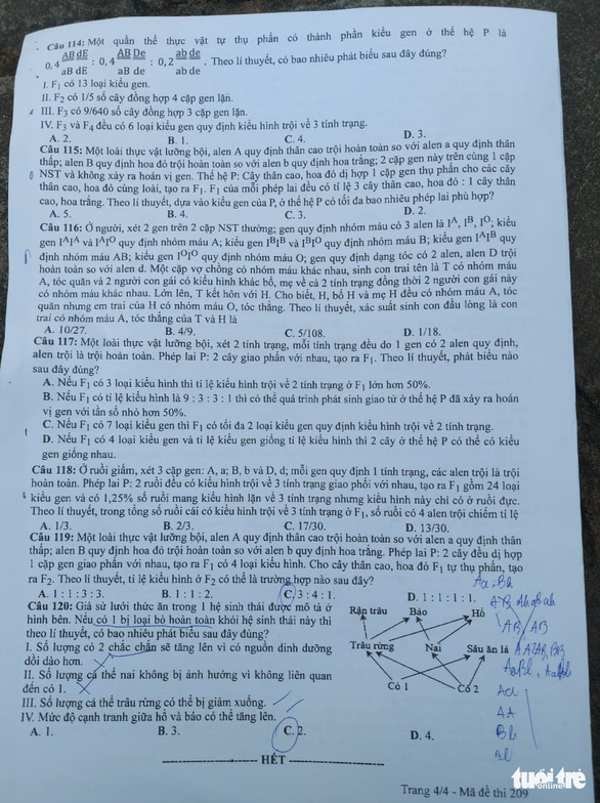 Câu 114: Một quần thể thực vật tự thụ phấn có thành phần kiểu gen ở thế hệ P là
0,4 AB dE/aB dE : 0,4 AB De/aB de : 0,2 ab de/ab de . Theo lí thuyết, có bao nhiêu phát biểu sau đây đúng?
I. F1 có 13 loại kiểu gen.
II. F2 có 1/5 số cây đồng hợp 4 cặp gen lặn.
III. F3 có 9/640 số cây đồng hợp 3 cặp gen lặn.
IV. F3 và F4 đều có 6 loại kiểu gen quy định kiểu hình trội về 3 tính trạng.
A. 2. B. 1. C. 4. D. 3.
Câu 115: Một loài thực vật lưỡng bội, alen A quy định thân cao trội hoàn toàn so với alen a quy định thân
thấp; alen B quy định hoa đỏ trội hoàn toàn so với alen b quy định hoa trắng; 2 cặp gen này trên cùng 1 cặp
NST và không xảy ra hoán vị gen. Thế hệ P: Cây thân cao, hoa đỏ dị hợp 1 cặp gen thụ phấn cho các cây
thân cao, hoa đỏ cùng loài, tạo ra F1. F1 của mỗi phép lai đều có tỉ lệ 3 cây thân cao, hoa đỏ : 1 cây thân
cao, hoa trắng. Theo lí thuyết, dựa vào kiểu gen của P, ở thế hệ P có tối đa bao nhiêu phép lai phù hợp?
A. 5. B. 4. C. 3. D. 2.
Câu 116: Ở người, xét 2 gen trên 2 cặp NST thường; gen quy định nhóm máu có 3 alen là IA, IB, IO; kiểu
gen IAIA và IAIO quy định nhóm máu A; kiểu gen IBIB và IBIO quy định nhóm máu B; kiểu gen IAIB quy
định nhóm máu AB; kiểu gen IOIO quy định nhóm máu O; gen quy định dạng tóc có 2 alen, alen D trội
hoàn toàn so với alen d. Một cặp vợ chồng có nhóm máu khác nhau, sinh con trai tên là T có nhóm máu
A, tóc quăn và 2 người con gái có kiểu hình khác bố, mẹ về cả 2 tính trạng đồng thời 2 người con gái này
có nhóm máu khác nhau. Lớn lên, T kết hôn với H. Cho biết, H, bố H và mẹ H đều có nhóm máu A, tóc
quăn nhưng em trai của H có nhóm máu O, tóc thẳng. Theo lí thuyết, xác suất sinh con đầu lòng là con
trai có nhóm máu A, tóc thẳng của T và H là
A. 10/27. B. 4/9. C. 5/108. D. 1/18.
Câu 117: Một loài thực vật lưỡng bội, xét 2 tính trạng, mỗi tính trạng đều do 1 gen có 2 alen quy định,
alen trội là trội hoàn toàn. Phép lai P: 2 cây giao phấn với nhau, tạo ra F1. Theo lí thuyết, phát biểu nào
sau đây đúng?
A. Nếu F1 có 3 loại kiểu hình thì tỉ lệ kiểu hình trội về 2 tính trạng ở F1 lớn hơn 50%.
B. Nếu F1 có tỉ lệ kiểu hình là 9 : 3 : 3 : 1 thì có thể quá trình phát sinh giao tử ở thế hệ P đã xảy ra hoán
vị gen với tần số nhỏ hơn 50%.
C. Nếu F1 có 7 loại kiểu gen thì F1 có tối đa 2 loại kiểu gen quy định kiểu hình trội về 2 tính trạng.
D. Nếu F1 có 4 loại kiểu gen và tỉ lệ kiểu gen giống tỉ lệ kiểu hình thì 2 cây ở thế hệ P có thể có kiểu
gen giống nhau.
Câu 118: Ở ruồi giấm, xét 3 cặp gen: A, a; B, b và D, d; mỗi gen quy định 1 tính trạng, các alen trội là trội
hoàn toàn. Phép lai P: 2 ruồi đều có kiểu hình trội về 3 tính trạng giao phối với nhau, tạo ra F1 gồm 24 loại
kiểu gen và có 1,25% số ruồi mang kiểu hình lặn về 3 tính trạng nhưng kiểu hình này chỉ có ở ruồi đực.
Theo lí thuyết, trong tổng số ruồi cái có kiểu hình trội về 3 tính trạng ở F1, số ruồi có 4 alen trội chiếm tỉ lệ
A. 1/3. B. 2/3. C. 17/30. D. 13/30.
Câu 119: Một loài thực vật lưỡng bội, alen A quy định thân cao trội hoàn toàn so với alen a quy định thân
thấp; alen B quy định hoa đỏ trội hoàn toàn so với alen b quy định hoa trắng. Phép lai P: 2 cây đều dị hợp
1 cặp gen giao phấn với nhau, tạo ra F1 có 4 loại kiểu hình. Cho cây thân cao, hoa đỏ F1 tự thụ phấn, tạo
ra F2. Theo lí thuyết, tỉ lệ kiểu hình ở F2 có thể là trường hợp nào sau đây?
A. 1 : 1 : 3 : 3. B. 1 : 1 : 2. C. 3 : 4 : 1. D. 1 : 1 : 1 : 1.
Câu 120: Giả sử lưới thức ăn trong 1 hệ sinh thái được mô tả ở
hình bên. Nếu cỏ 1 bị loại bỏ hoàn toàn khỏi hệ sinh thái này thì
theo lí thuyết, có bao nhiêu phát biểu sau đây đúng?
I. Số lượng cỏ 2 chắc chắn sẽ tăng lên vì có nguồn dinh dưỡng
dồi dào hơn.
II. Số lượng cá thể nai không bị ảnh hưởng vì không liên quan
đến cỏ 1.
III. Số lượng cá thể trâu rừng có thể bị giảm xuống.
IV. Mức độ cạnh tranh giữa hổ và báo có thể tăng lên.
A. 1. B. 3. C. 2. D. 4.
Rận trâu Báo Hổ
Trâu rừng Nai Sâu ăn lá
Cỏ 1 Cỏ 2
Aa
AA
Bb
HẾT
Trang 4/4 - Mã đề thi 209
tuổi trẻ
online